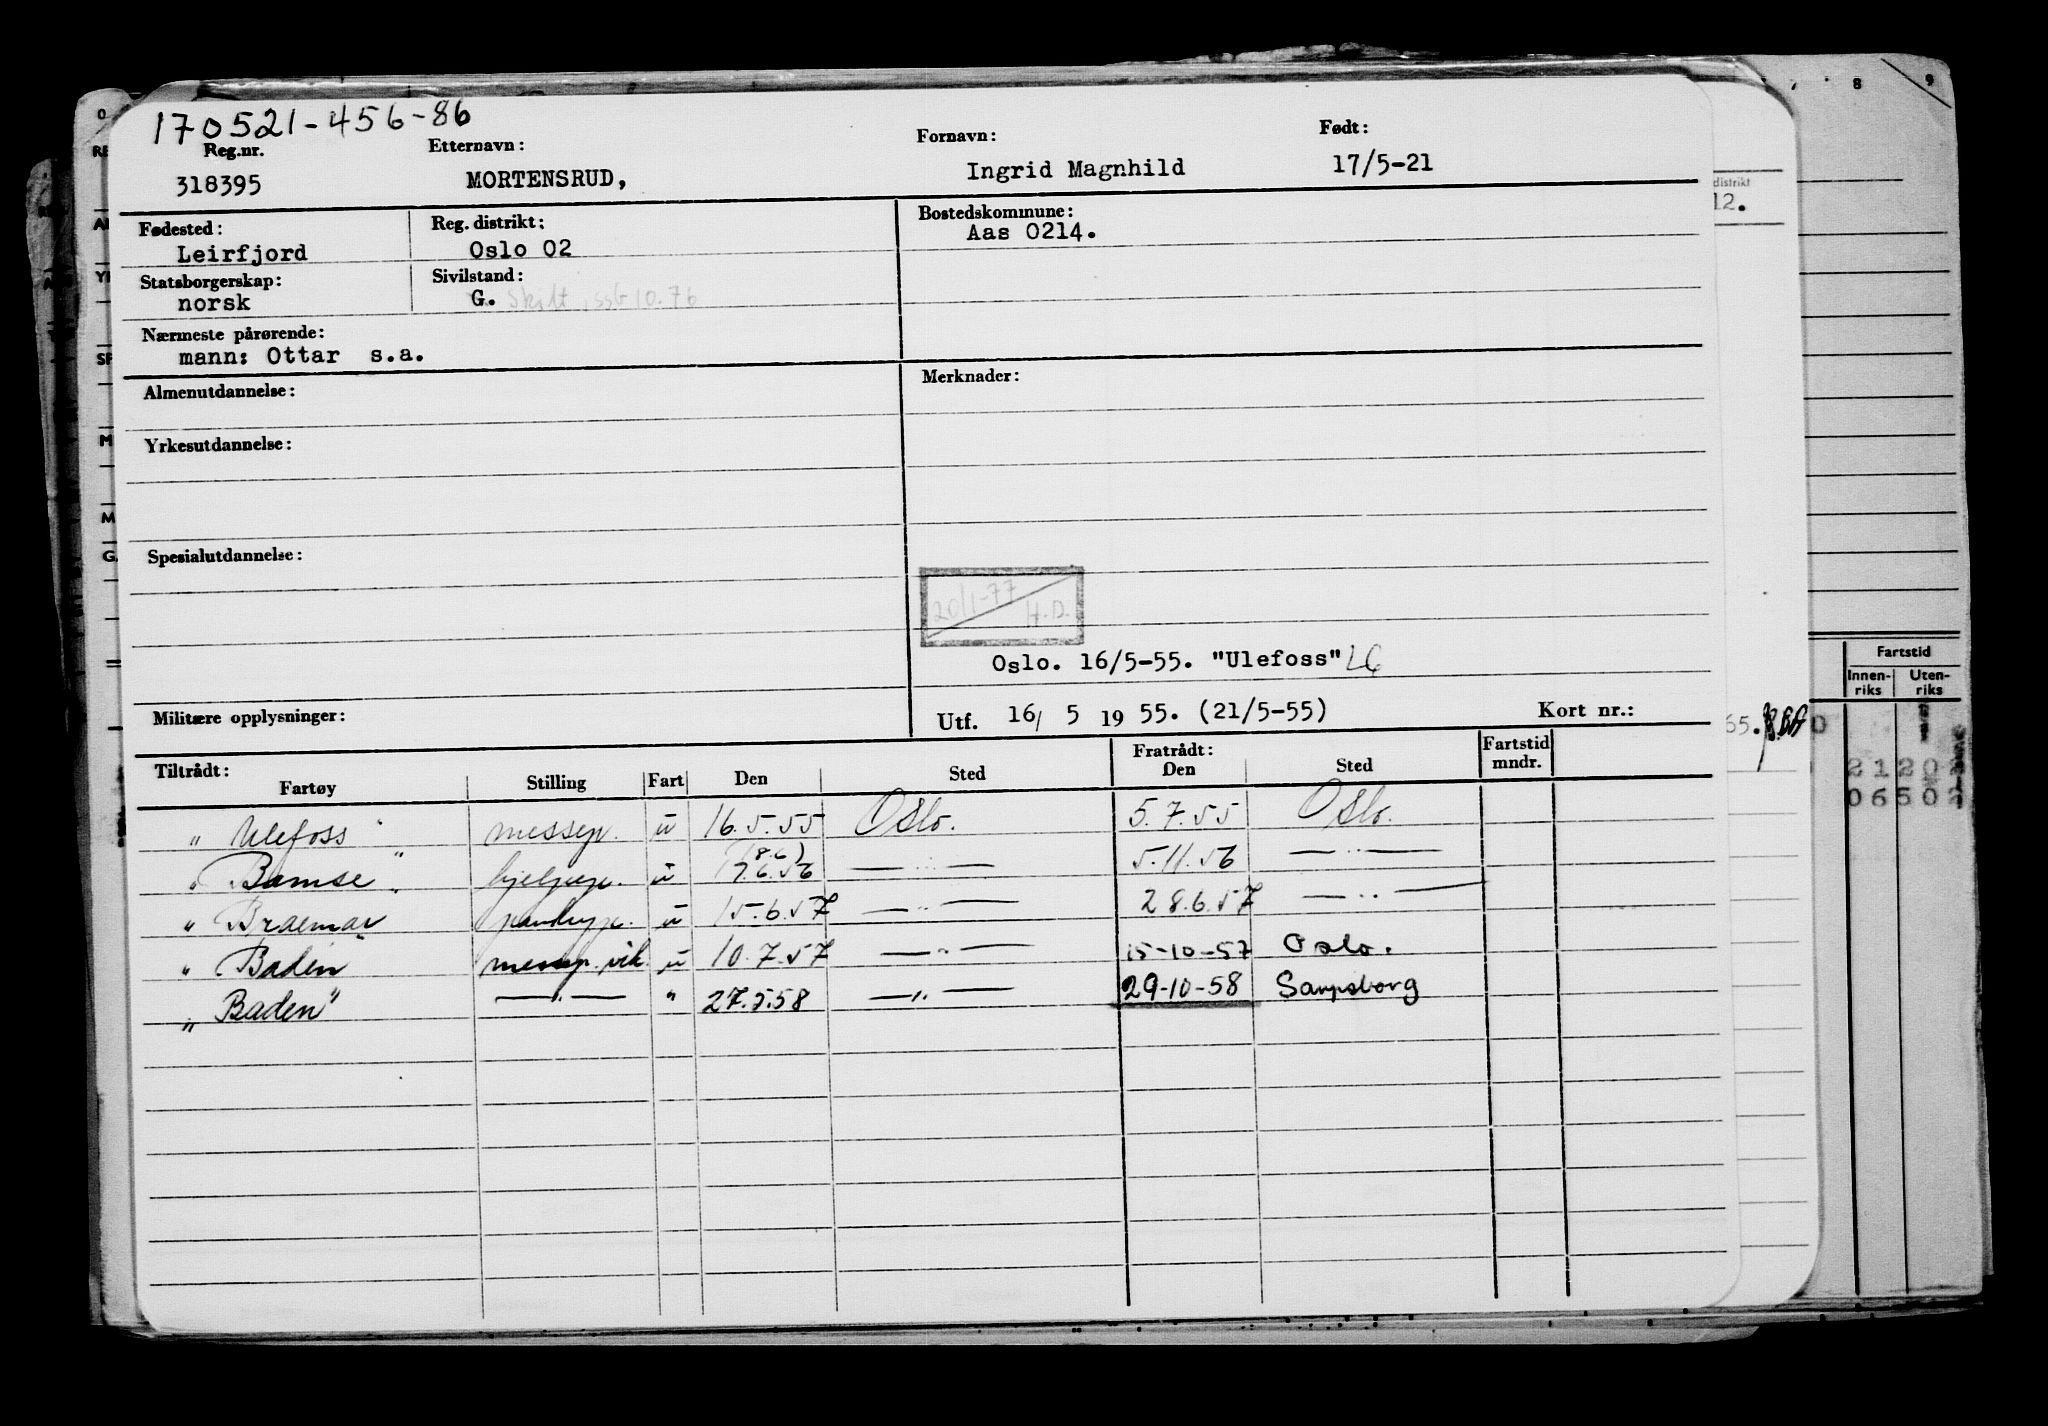 170521-456-86
Reg.nr. Etternavn: Fornavn: Født:
318395 MORTENSRUD, Ingrid Magnhild 17/5-21
Fødested: Reg. distrikt: Bostedskommune:
Leirfjord Oslo 02 Aas 0214.
Statsborgerskap: Sivilstand:
norsk G. Skilt, ssb 10.76
Nærmeste pårørende:
mann: Ottar s.a.
Almenutdannelse: Merknader:
Yrkesutdannelse:
Spesialutdannelse:
20/1-77 H.D.
Oslo. 16/5-55. "Ulefoss"
Militære opplysninger: Utf. 16/ 5 19 55. (21/5-55) Kort nr.:
Tiltrådt: Fratrådt: Fartstid mndr.
Fartøy Stilling Fart Den Sted Den Sted
"Ulefoss" messep. u 16.5.55 Oslo. 5.7.55 Oslo.
(8.6)
"Bamse" hjelpep. u 7.6.56 — " — 5.11.56 — " —
"Braemar" u 15.6.57 — " — 28.6.57 — " —
"Baden" messep. vik. u 10.7.57 — " — 15-10-57 Oslo.
"Baden" — " — " 27.5.58 — " — 29-10-58 Sarpsborg
distrikt
12.
8 9
Fartstid
Innen-riks Uten-riks
65.
2120
06502